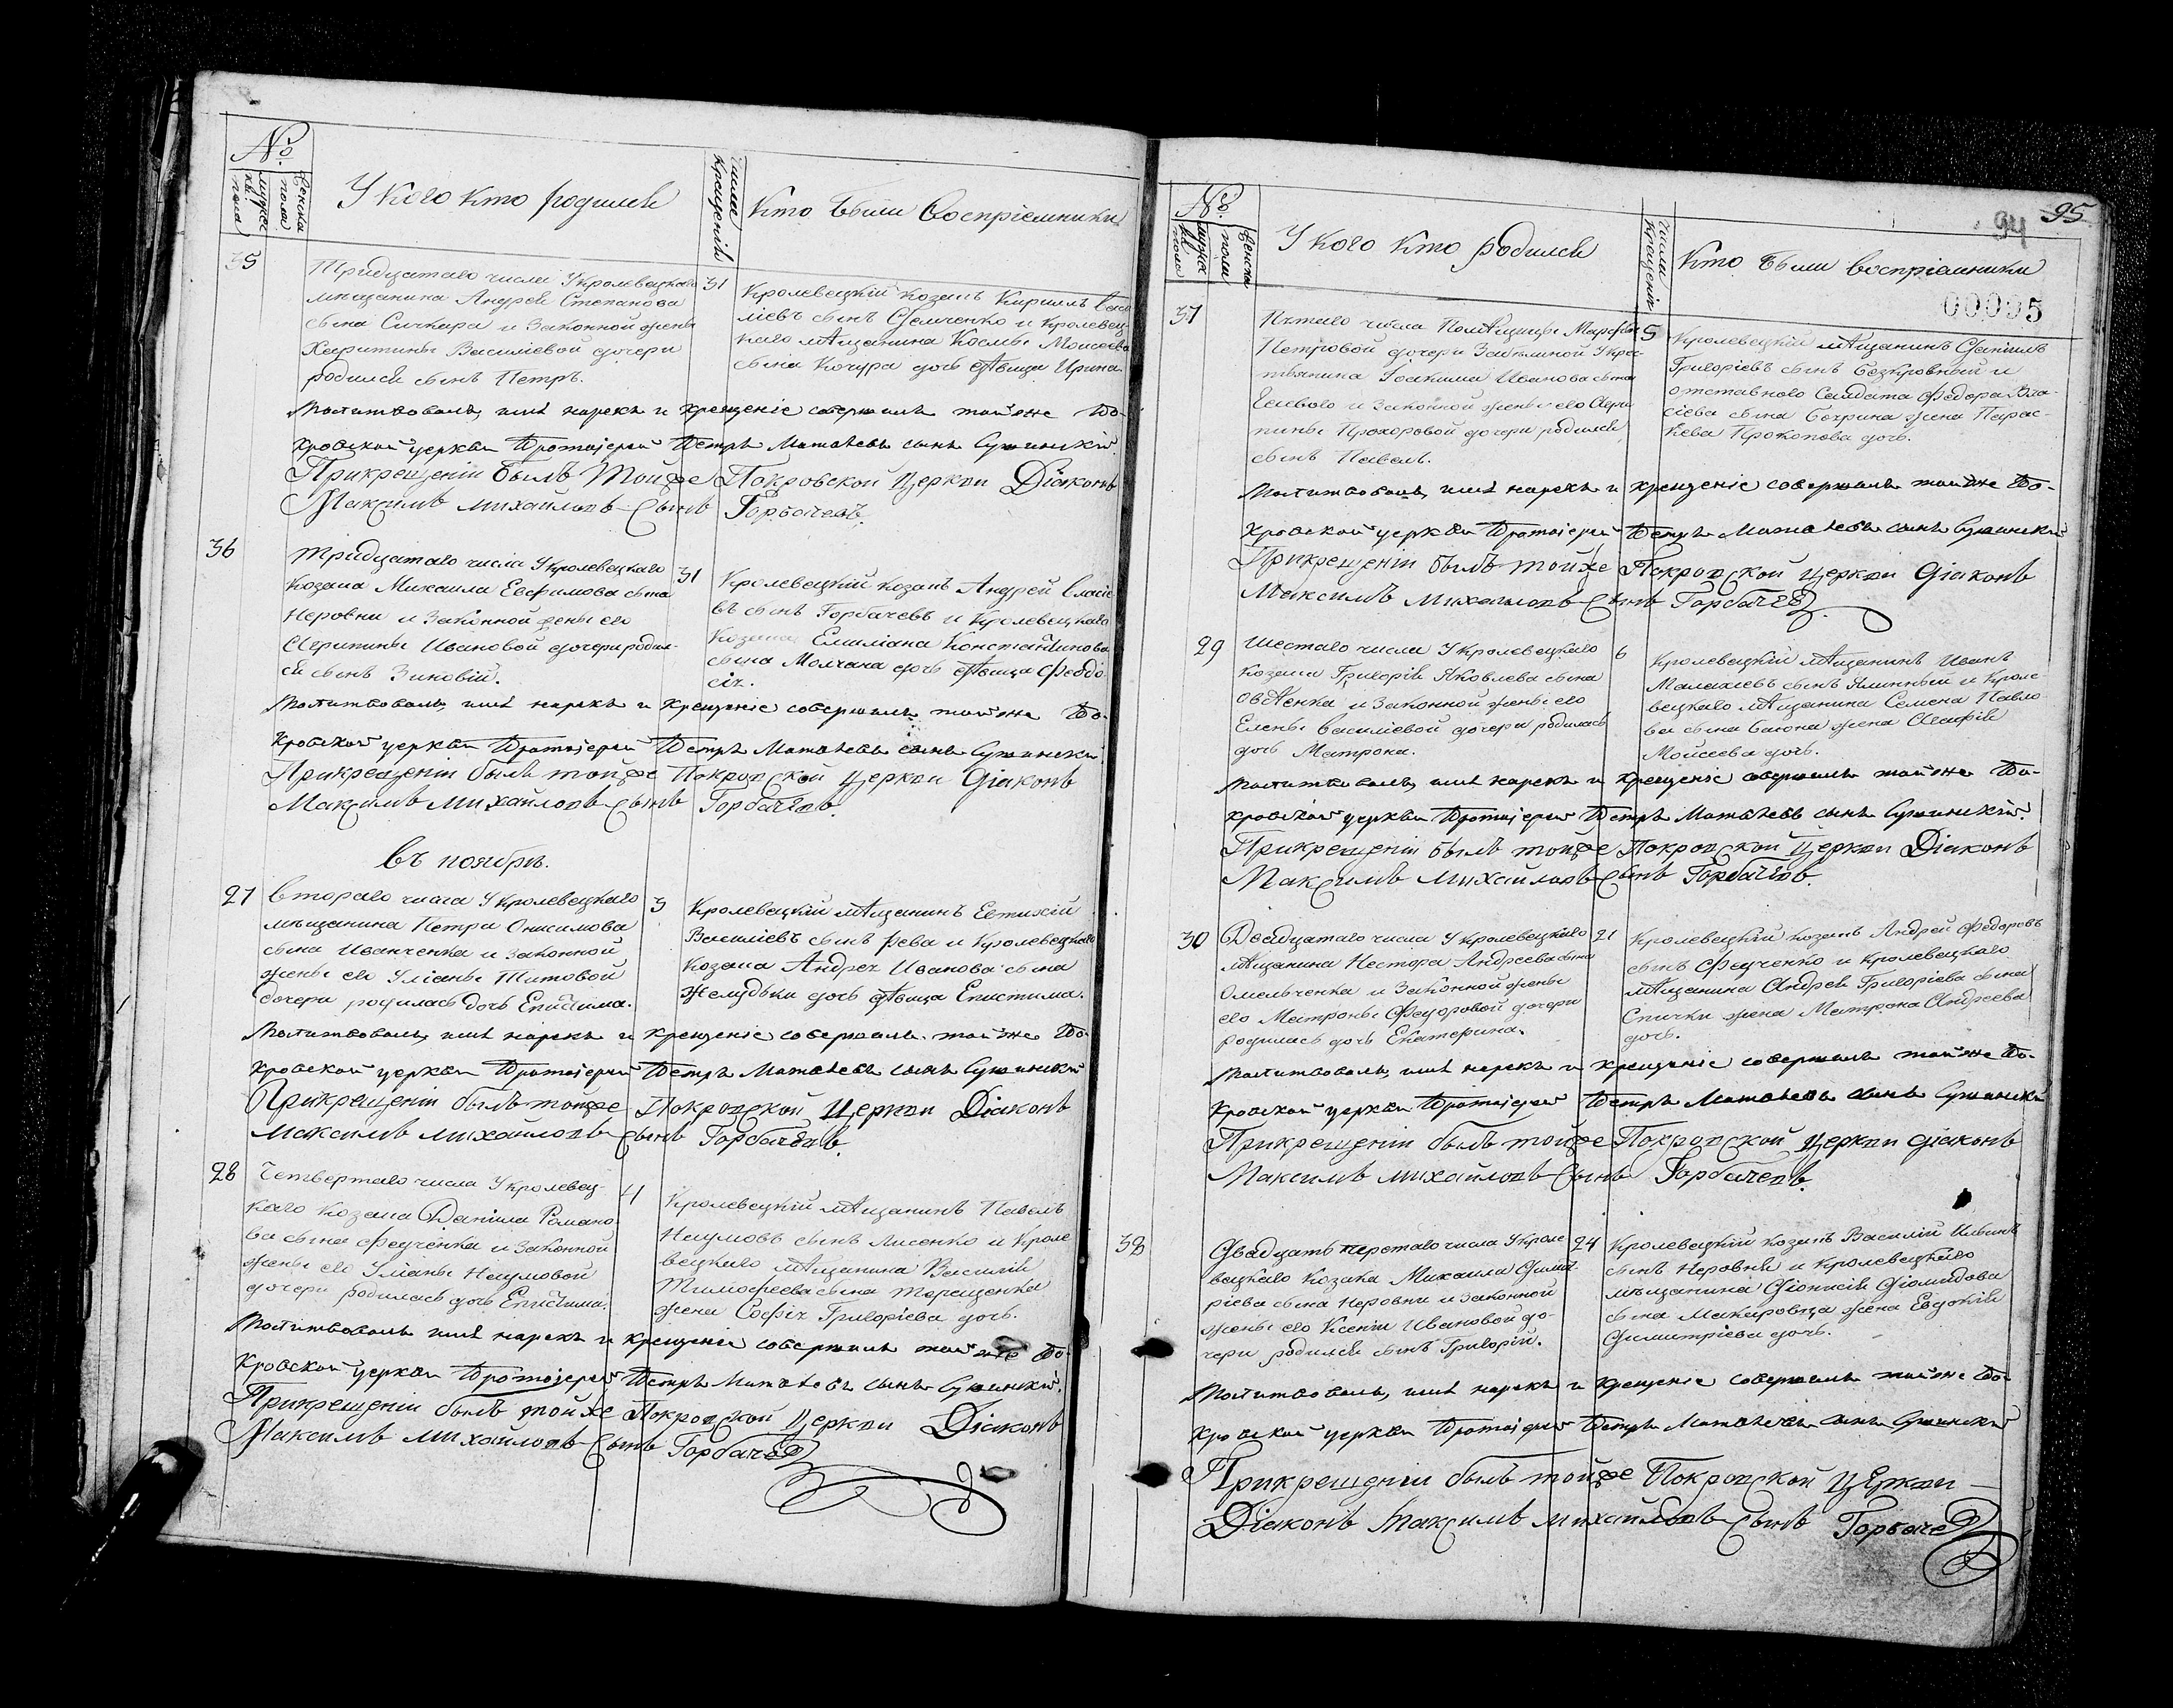 №
мужска пола
женска пола
У кого кто родился
Числа крещенія
Кто были воспріемники
35
Тридцатаго числа У кролевецкаго
мѣщанина Андрея Степанова
сына Сичкара и Законной жены
Харитины Василіевой дочери
родился сынъ Петръ.
31
Кролевецкій козакъ Кириллъ
ліевъ сынъ Демченко и кролевец
каго мѣщанина Космы Моисеева
сына Кочура дочь дѣвица Ирина.
Молитвовалъ, имя нарекъ и крещеніе совершилъ той же По-
кровской церкви Протоіерей Петръ Матвѣевъ сынъ Сушинскій.
При крещеніи былъ той же Покровской Церкви Діаконъ
Максимъ Михайловъ Сынъ Горбачевъ.
36
Тридцатаго числа У кролевецкаго
козака Михаила Евфимова сына
Неровни и Законной жены его
Агрипины Ивановой дочери родил-
ся сынъ Зиновій.
31
Кролевецкій козакъ Андрей Власіе
въ сынъ Горбачевъ и кролевецкаго
козака Емиліана Константинова
сына Молчана дочь дѣвица Феодо
сія.
Молитвовалъ, имя нарекъ и крещеніе совершилъ той же По-
кровской церкви Протоіерей Петръ Матвѣевъ сынъ Сушинскій
При крещеніи былъ той же Покровской Церкви Діаконъ
Максимъ Михайловъ Сынъ Горбачевъ.
въ ноябрѣ.
27
Втораго числа У кролевецкаго
мѣщанина Петра Онисимова
сына Иванченка и Законной
жены его Уліаны Титовой
дочери родилась дочь Епистима.
3
Кролевецкій мѣщанинъ Евтихій
Василіевъ сынъ Рева и кролевецкаго
козака Андрея Иванова сына
Желудька дочь дѣвица Епистима.
Молитвовалъ, имя нарекъ и крещеніе совершилъ той же По-
кровской церкви Протоіерей Петръ Матвѣевъ сынъ Сушинскій
При крещеніи былъ той же Покровской Церкви Діаконъ
Максимъ Михайловъ Сынъ Горбачевъ.
28
Четвертаго числа У кролевец-
каго козака Даніила Романо-
ва сына Федченка и Законной
жены его Уліаны Наумовой
дочери родилась дочь Епистима.
4
Кролевецкій мѣщанинъ Павелъ
Наумовъ сынъ Лисенко и кроле
вецкаго мѣщанина Василія
Тимофеева сына Терещенка
жена Софія Григоріева дочь.
Молитвовалъ имя нарекъ и крещеніе совершилъ той же По-
кровской церкви Протоіерей Петръ Матвѣевъ сынъ Сушинскій.
При крещеніи былъ той же Покровской Церкви Діаконъ
Максимъ Михайловъ Сынъ Горбачевъ
94
95
№
мужска пола
женска пола
У кого кто родился
Числа крещенія
Кто были воспріемники
00095
37
Пятаго числа Помѣщицы Марфы
Петровой дочери Забѣлиной У кре-
стьянина Іоакима Иванова сына
и Законной жены его Агри
пины Прохоровой дочери родился
сынъ Павелъ.
5
Кролевецкій мѣщанинъ Даніилъ
Григоріевъ сынъ Безкровный и
отставного Салдата Федора Вла-
сіева сына Бохрина жена Парас-
кева Прокопова дочь.
Молитвовалъ, имя нарекъ и крещеніе совершилъ той же По-
кровской церкви Протоіерей Петръ Матвѣевъ сынъ Сушинскій
При крещеніи былъ той же Покровской Церкви Діаконъ
Максимъ Михайловъ Сынъ Горбачевъ.
29
Шестаго числа У кролевецкаго
козака Григорія Яковлева сына
Овѣенка и Законной жены его
Елены Василіевой дочери родилась
дочь Матрона.
6
Кролевецкій мѣщанинъ Иванъ
Малахіевъ сынъ Ялинный и кроле
вецкаго мѣщанина Семена Павло
ва сына Саюна жена Агафія
Мойсеева дочь.
Молитвовалъ, имя нарекъ и крещеніе совершилъ той же По-
кровской церкви Протоіерей Петръ Матвѣевъ сынъ Сушинскій.
При крещеніи былъ той же Покровской Церкви Діаконъ
Максимъ Михайловъ Сынъ Горбачевъ.
30
Двадцатаго числа У кролевецкаго
мѣщанина Нестора Андреева сына
Омельченка и Законной жены
его Матроны Федоровой дочери
родилась дочь Екатерина.
21
Кролевецкій козакъ Андрей Федоровъ
сынъ Федченко и кролевецкаго
мѣщанина Андрея Григоріева сына
Спички жена Матрона Андреева
дочь.
Молитвовалъ, имя нарекъ и крещеніе совершилъ той же По-
кровской церкви Протоіерей Петръ Матвѣевъ сынъ Сушинскій
При крещеніи былъ той же Покровской Церкви Діаконъ
Максимъ Михайловъ Сынъ Горбачевъ.
38
Двадцать четвертаго числа У кроле
вецкаго козака Михаила Димит
ріева сына Неровни и Законной
жены его Ксеніи Ивановой до-
чери родился сынъ Григорій.
24
Кролевецкій козакъ Василій Ильинъ
сынъ Неровня и кролевецкаго
мѣщанина Діонисія Діомидова
сына Макаровца жена Евдокія
Димитріева дочь.
Молитвовалъ, имя нарекъ и крещеніе совершилъ той же По-
кровской церкви Протоіерей Петръ Матвѣевъ сынъ Сушинскій
При крещеніи былъ той же Покровской Церкви
Діаконъ Максимъ Михайловъ Сынъ Горбачевъ